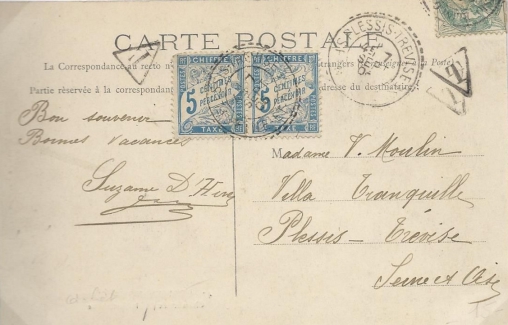 CARTE POSTALE
La Correspondance au recto n
trangers
Poste)
Partie réservée à la correspondan
dresse du destinataire.
PLESSIS-TRÉVISE
CHIFFRE
CHIFFRE
5
CENTIMES
À
PERCEVOIR
5
CENTIMES
À
PERCEVOIR
TAXE
T
T
T
Bon souvenir
Bonnes vacances
Suzanne D
Madame V. Moulin
Villa Tranquille
Plessis-Trévise
Seine et Oise